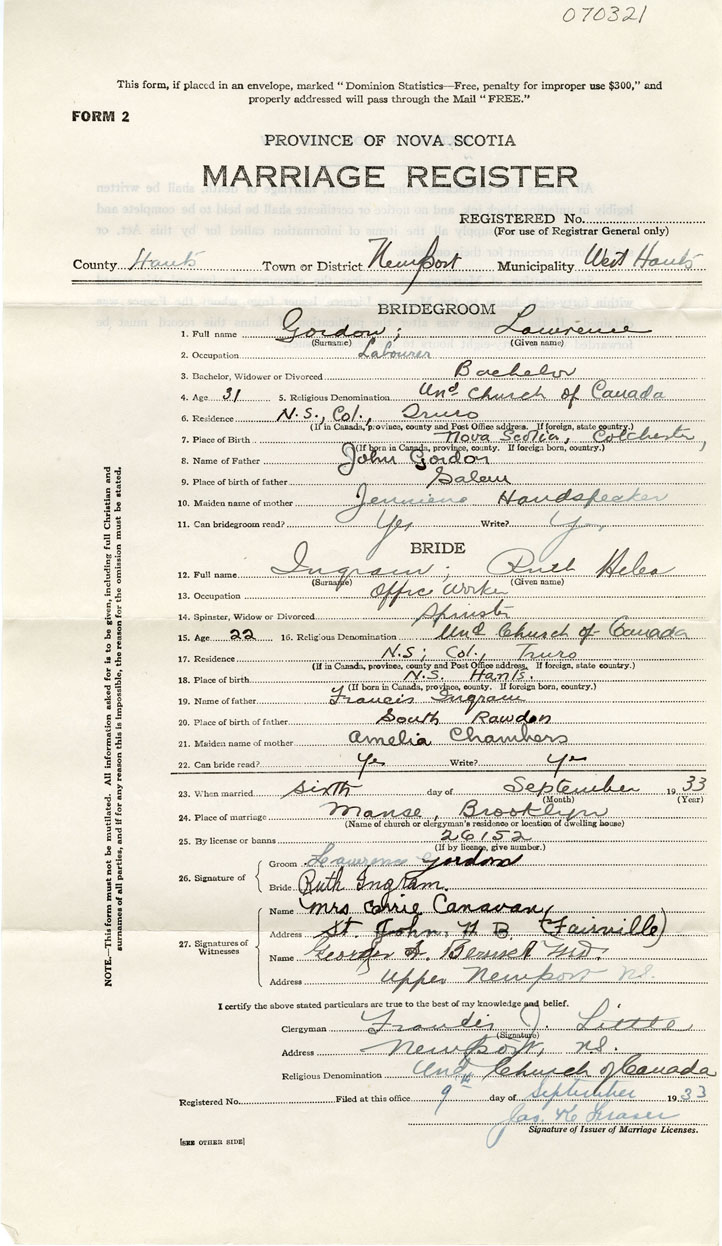 070321
This form, if placed in an envelope, marked “ Dominion Statistics—Free, penalty for improper use $300,” and
properly addressed will pass through the Mail “ FREE.”
FORM 2
PROVINCE OF NOVA SCOTIA
MARRIAGE REGISTER
REGISTERED No.
(For use of Registrar General only)
County Hants Town or District Newport Municipality West Hants
BRIDEGROOM
1. Full name Gordon ; Lawrence
(Surname) (Given name)
2. Occupation Labourer
3. Bachelor, Widower or Divorced Bachelor
4. Age 31 5. Religious Denomination Und Church of Canada
6. Residence N.S., Col., Truro
(If in Canada, province, county and Post Office address. If foreign, state country.)
7. Place of Birth Nova Scotia, Colchester,
(If born in Canada, province, county. If foreign born, country.)
8. Name of Father John Gordon
9. Place of birth of father Salem
10. Maiden name of mother Handspeaker
11. Can bridegroom read? Yes Write? Yes
BRIDE
12. Full name Ingram ; Ruth
(Surname) (Given name)
13. Occupation Office Worker
14. Spinster, Widow or Divorced Spinster
15. Age 22 16. Religious Denomination Und Church of Canada
17. Residence N.S; Col., Truro
(If in Canada, province, county and Post Office address. If foreign, state country.)
18. Place of birth N.S. Hants.
(If born in Canada, province, county. If foreign born, country.)
19. Name of father Francis Ingram
20. Place of birth of father South Rawdon
21. Maiden name of mother Amelia Chambers
22. Can bride read? Yes Write? Yes
23. When married sixth day of September 1933
(Month) (Year)
24. Place of marriage Manse, Brooklyn
(Name of church or clergyman's residence or location of dwelling house)
25. By license or banns 26152
(If by licence, give number.)
26. Signature of
Groom Lawrence Gordon
Bride Ruth Ingram.
27. Signatures of Witnesses
Name Mrs Carrie Canavan
Address St. John, N B. (Fairville)
Name George A. MD.
Address Upper Newport N.S.
I certify the above stated particulars are true to the best of my knowledge and belief.
Clergyman Francis J. Little
(Signature)
Address Newport, N.S.
Religious Denomination Und Church of Canada
Registered No. Filed at this office 9th day of September 1933
Jas. Fraser
Signature of Issuer of Marriage Licenses.
[SEE OTHER SIDE]
NOTE.—This form must not be mutilated. All information asked for is to be given, including full Christian and
surnames of all parties, and if for any reason this is impossible, the reason for the omission must be stated.